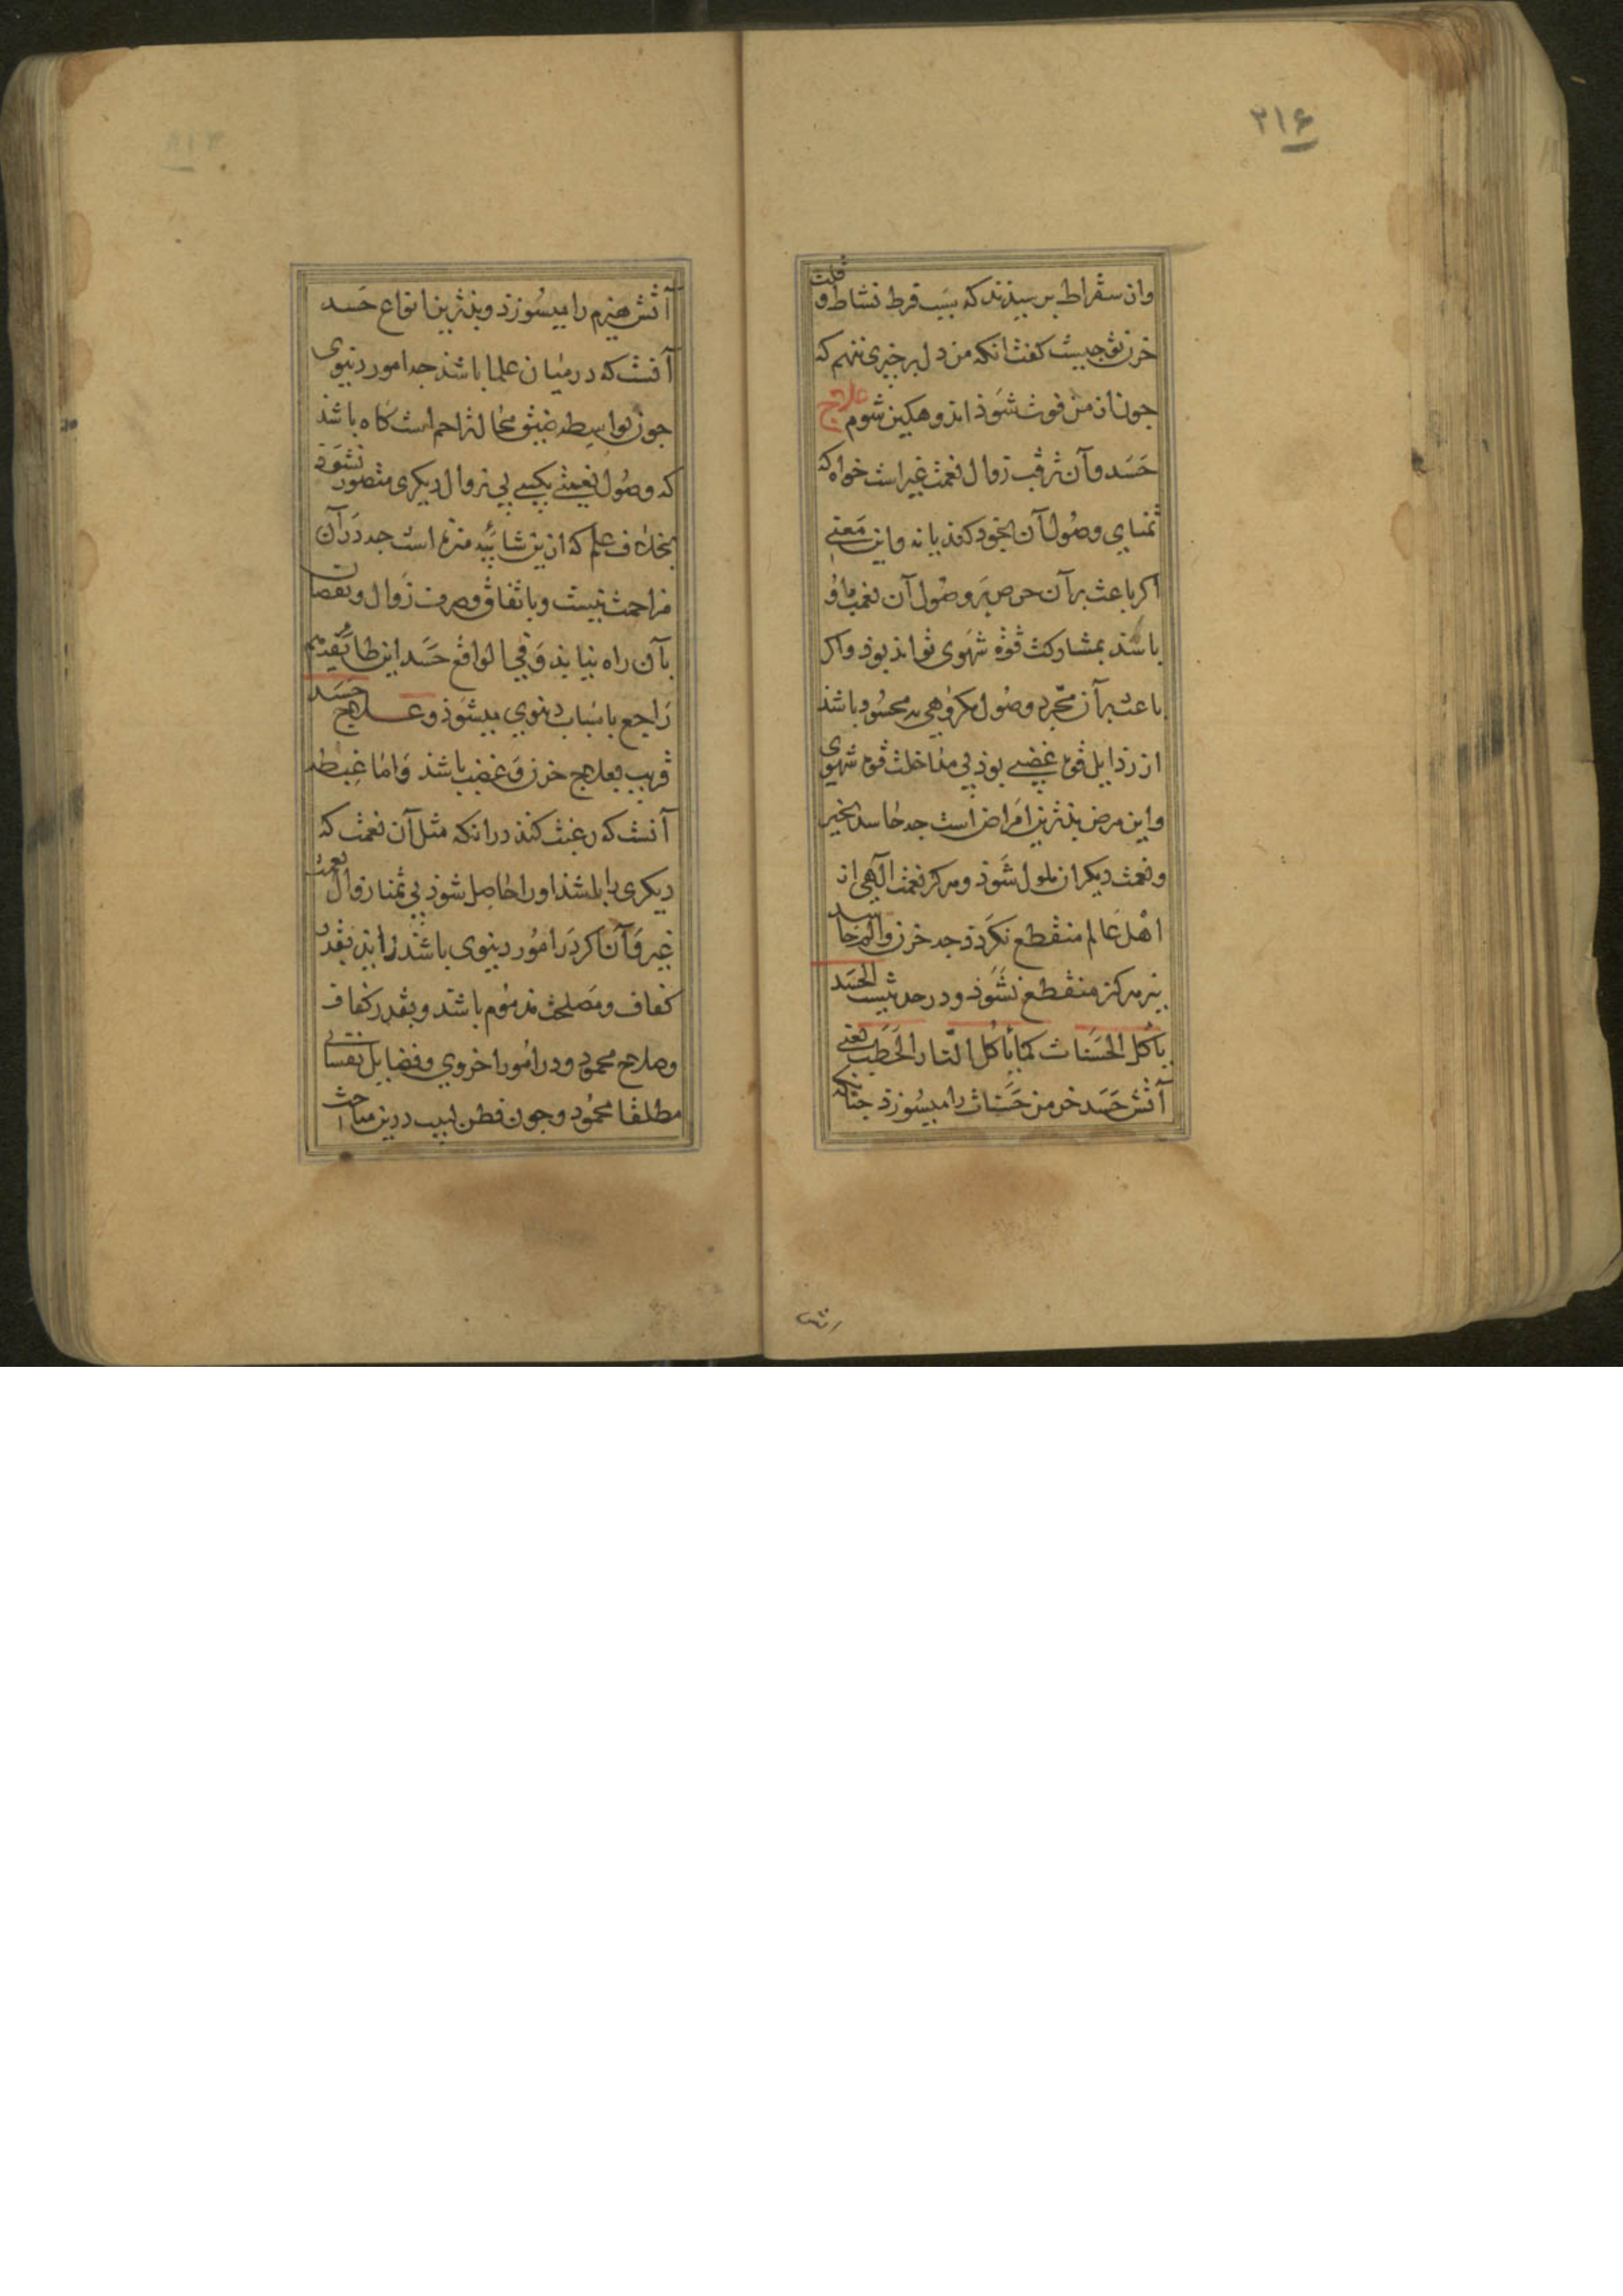 ۳۱۶
وان سقراط برسیدند که بسبب فرط نشاط و قلت
حزن تو جیست کفت انکه من دل بر جیزی ننهم که
جون ان من فوت شوذ اندوهکین شوم علاج
حسد و آن ترقب زوال نعمت غیر است خواه که
تمنای وصول آن بخود کند یا نه و این معنی
اکر باعث بر آن حرص بر وصول آن نعمت باو
باشد بمشارکت قوة شهوی تواند بوذ و اکر
باعث بر آن مجرد وصول مکروهی به محسود باشذ
از رذایل قوت غضبی بوذ بی مداخلت قوت شهوی
و این مرض بذترین امراض است جه حاسد بخیر
و نعمت دیکران ملول شوذ و هرکز نعمت آلهی از
اهل عالم منقطع نکردذ جه حزن و الم حاسد
نیز هرکز منقطع نشوذ و در حدیثست الحسد
یأکل الحسنات کما یأکل النار الحطب یعنی
آتش حسد خرمن حسنات را میسوزذ جنانکه
آتش هیزم را میسوزذ و بذترین انواع حسد
آنست که در میان علما باشذ جه امور دنیوی
جون بواسطه ضیق محل تزاحم است کاه باشذ
که وصول نعمتی بکسی بی زوال دیکری متصور نشوذ
بخلاف علم که ازین شائبه منزه است جه در آن
مزاحمت نیست و باتفاق و صرف زوال و نقصان
بآن راه نیابذ و فی الواقع حسد این طایفه هم
راجع باسباب دنیوی میشوذ و علاج حسد
قریب بعلاج حزن و غضب باشذ و اما غبطه
آنست که رغبت کنذ در انکه مثل آن نعمت که
دیکری را باشذ او را حاصل شوذ بی تمنا زوال نعمت
غیر و آن اکر در امور دنیوی باشذ زاید بقدر
کفاف و مصلحت مذموم باشد و بقدر کفاف
و صلاح محمود و در امور اخروی و فضایل نفسانی
مطلقا محمود و جون فطن لبیب درین مباحث
آتش